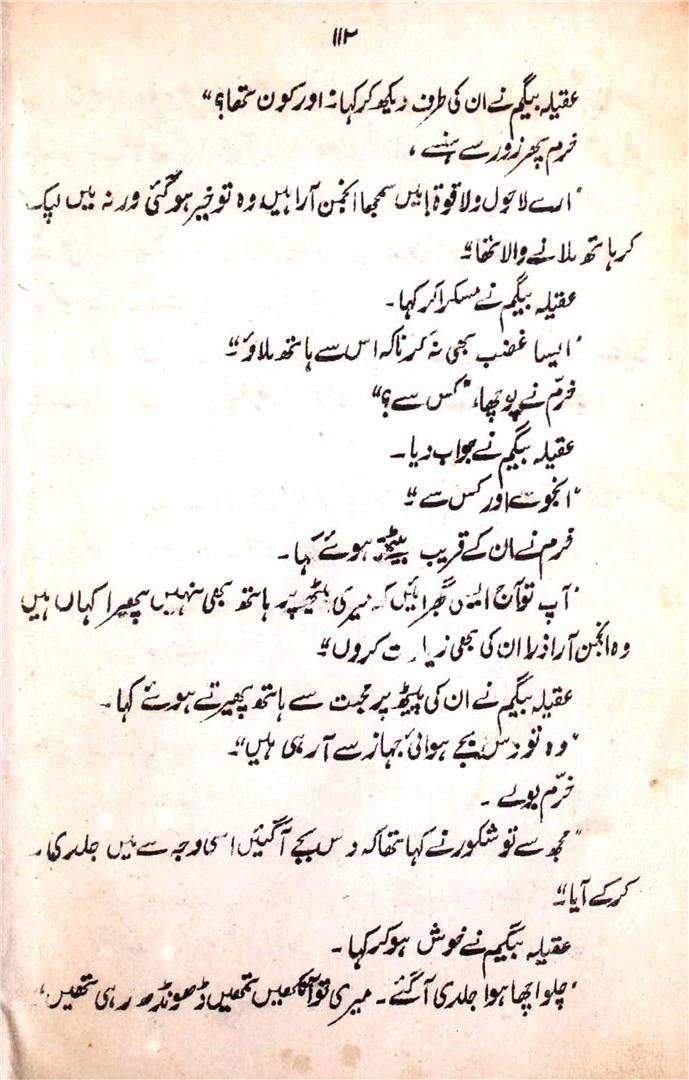 ۱۱۲
عقیلہ بیگم نے ان کی طرف دیکھ کر کہا نہ اور کون تھا؟“
خرم پھر زور سے ہنسے ،
”ارے لا حول ولا قوۃ! میں سمجھا انجمن آرا ہیں وہ تو خیر ہو گئی ور نہ میں لپک
کر ہاتھ ملانے والا تھا“
عقیلہ بیگم نے مسکرا کر کہا۔
”ایسا غضب بھی نہ کرنا کہ اس سے ہاتھ ملاؤ“
خرّم نے پوچھا، ”کس سے؟“
عقیلہ بیگم نے جواب دیا۔
”انجو سے اور کس سے“
خرم نے ان کے قریب بیٹھتے ہوئے کہا۔
”آپ تو آج ایسی گھبرائیں کہ میری پیٹھ پر ہاتھ بھی نہیں پھیرا کہاں ہیں
وہ انجمن آرا ذرا ان کی بھی زیارت کروں“
عقیلہ بیگم نے ان کی پیٹھ پر محبت سے ہاتھ پھیرتے ہوئے کہا۔
”وہ تو دس بجے ہوائی جہاز سے آ رہی ہیں“
خرّم بولے ۔
”مجھ سے تو شکور نے کہا تھا کہ دس بجے آگئیں اسی وجہ سے میں جلدی
کر کے آیا“
عقیلہ بیگم نے خوش ہو کر کہا۔
”چلو اچھا ہوا جلدی آ گئے۔ میری تو آنکھیں تمہیں ڈھونڈھ رہی تھیں“